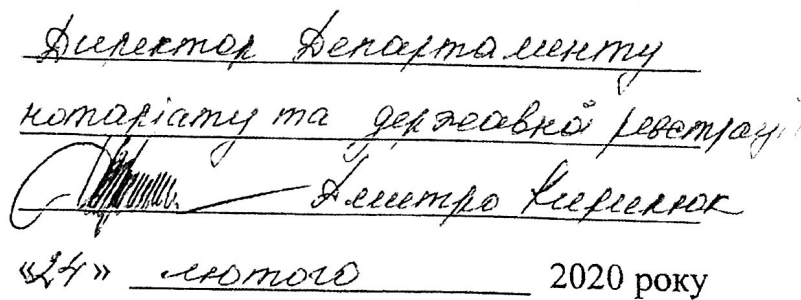 Директор Департаменту
нотаріату та державної реєстрації
Дмитро Кирилюк
«24» лютого 2020 року